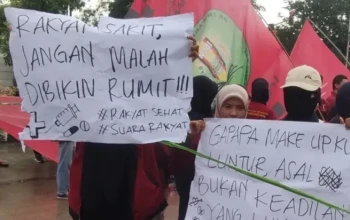 RAKYAT SAKIT,
JANGAN MALAH
DIBIKIN RUMIT!!!
#RAKYAT SEHAT
#SUARA RAKYAT
GAPAPA MAKE UP KU
LUNTUR ASAL
BUKAN KEADILAN
YANG